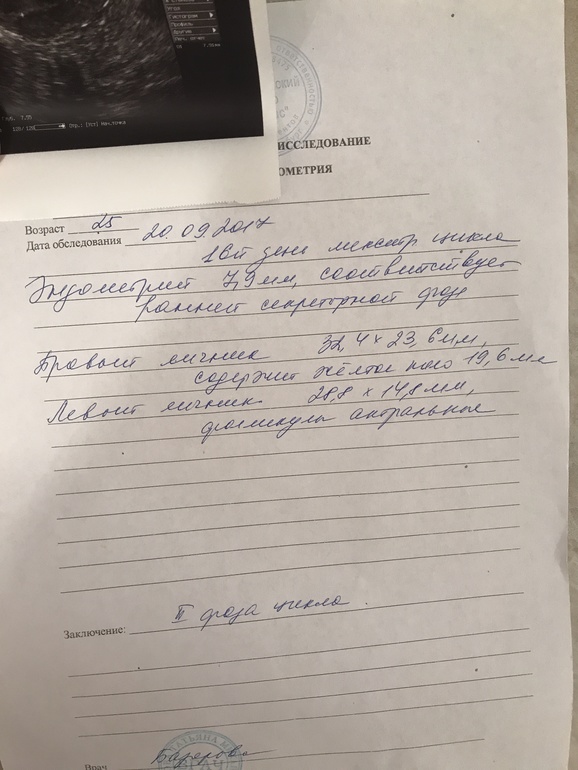 Угол
Гистограм
Профиль
Другие
ИССЛЕДОВАНИЕ
ОМЕТРИЯ
Возраст 25
Дата обследования 20.09.2017
16й день менстр цикла
Эндометрий 7,9 мм, соответствует
ранней секреторной фазе
Правый яичник 32,4 x 23,6 мм,
содержит жёлтое тело 19,6 мм
Левый яичник 28,8 x 14,8 мм,
фолликулы антральные
Заключение: II фаза цикла.
Врач